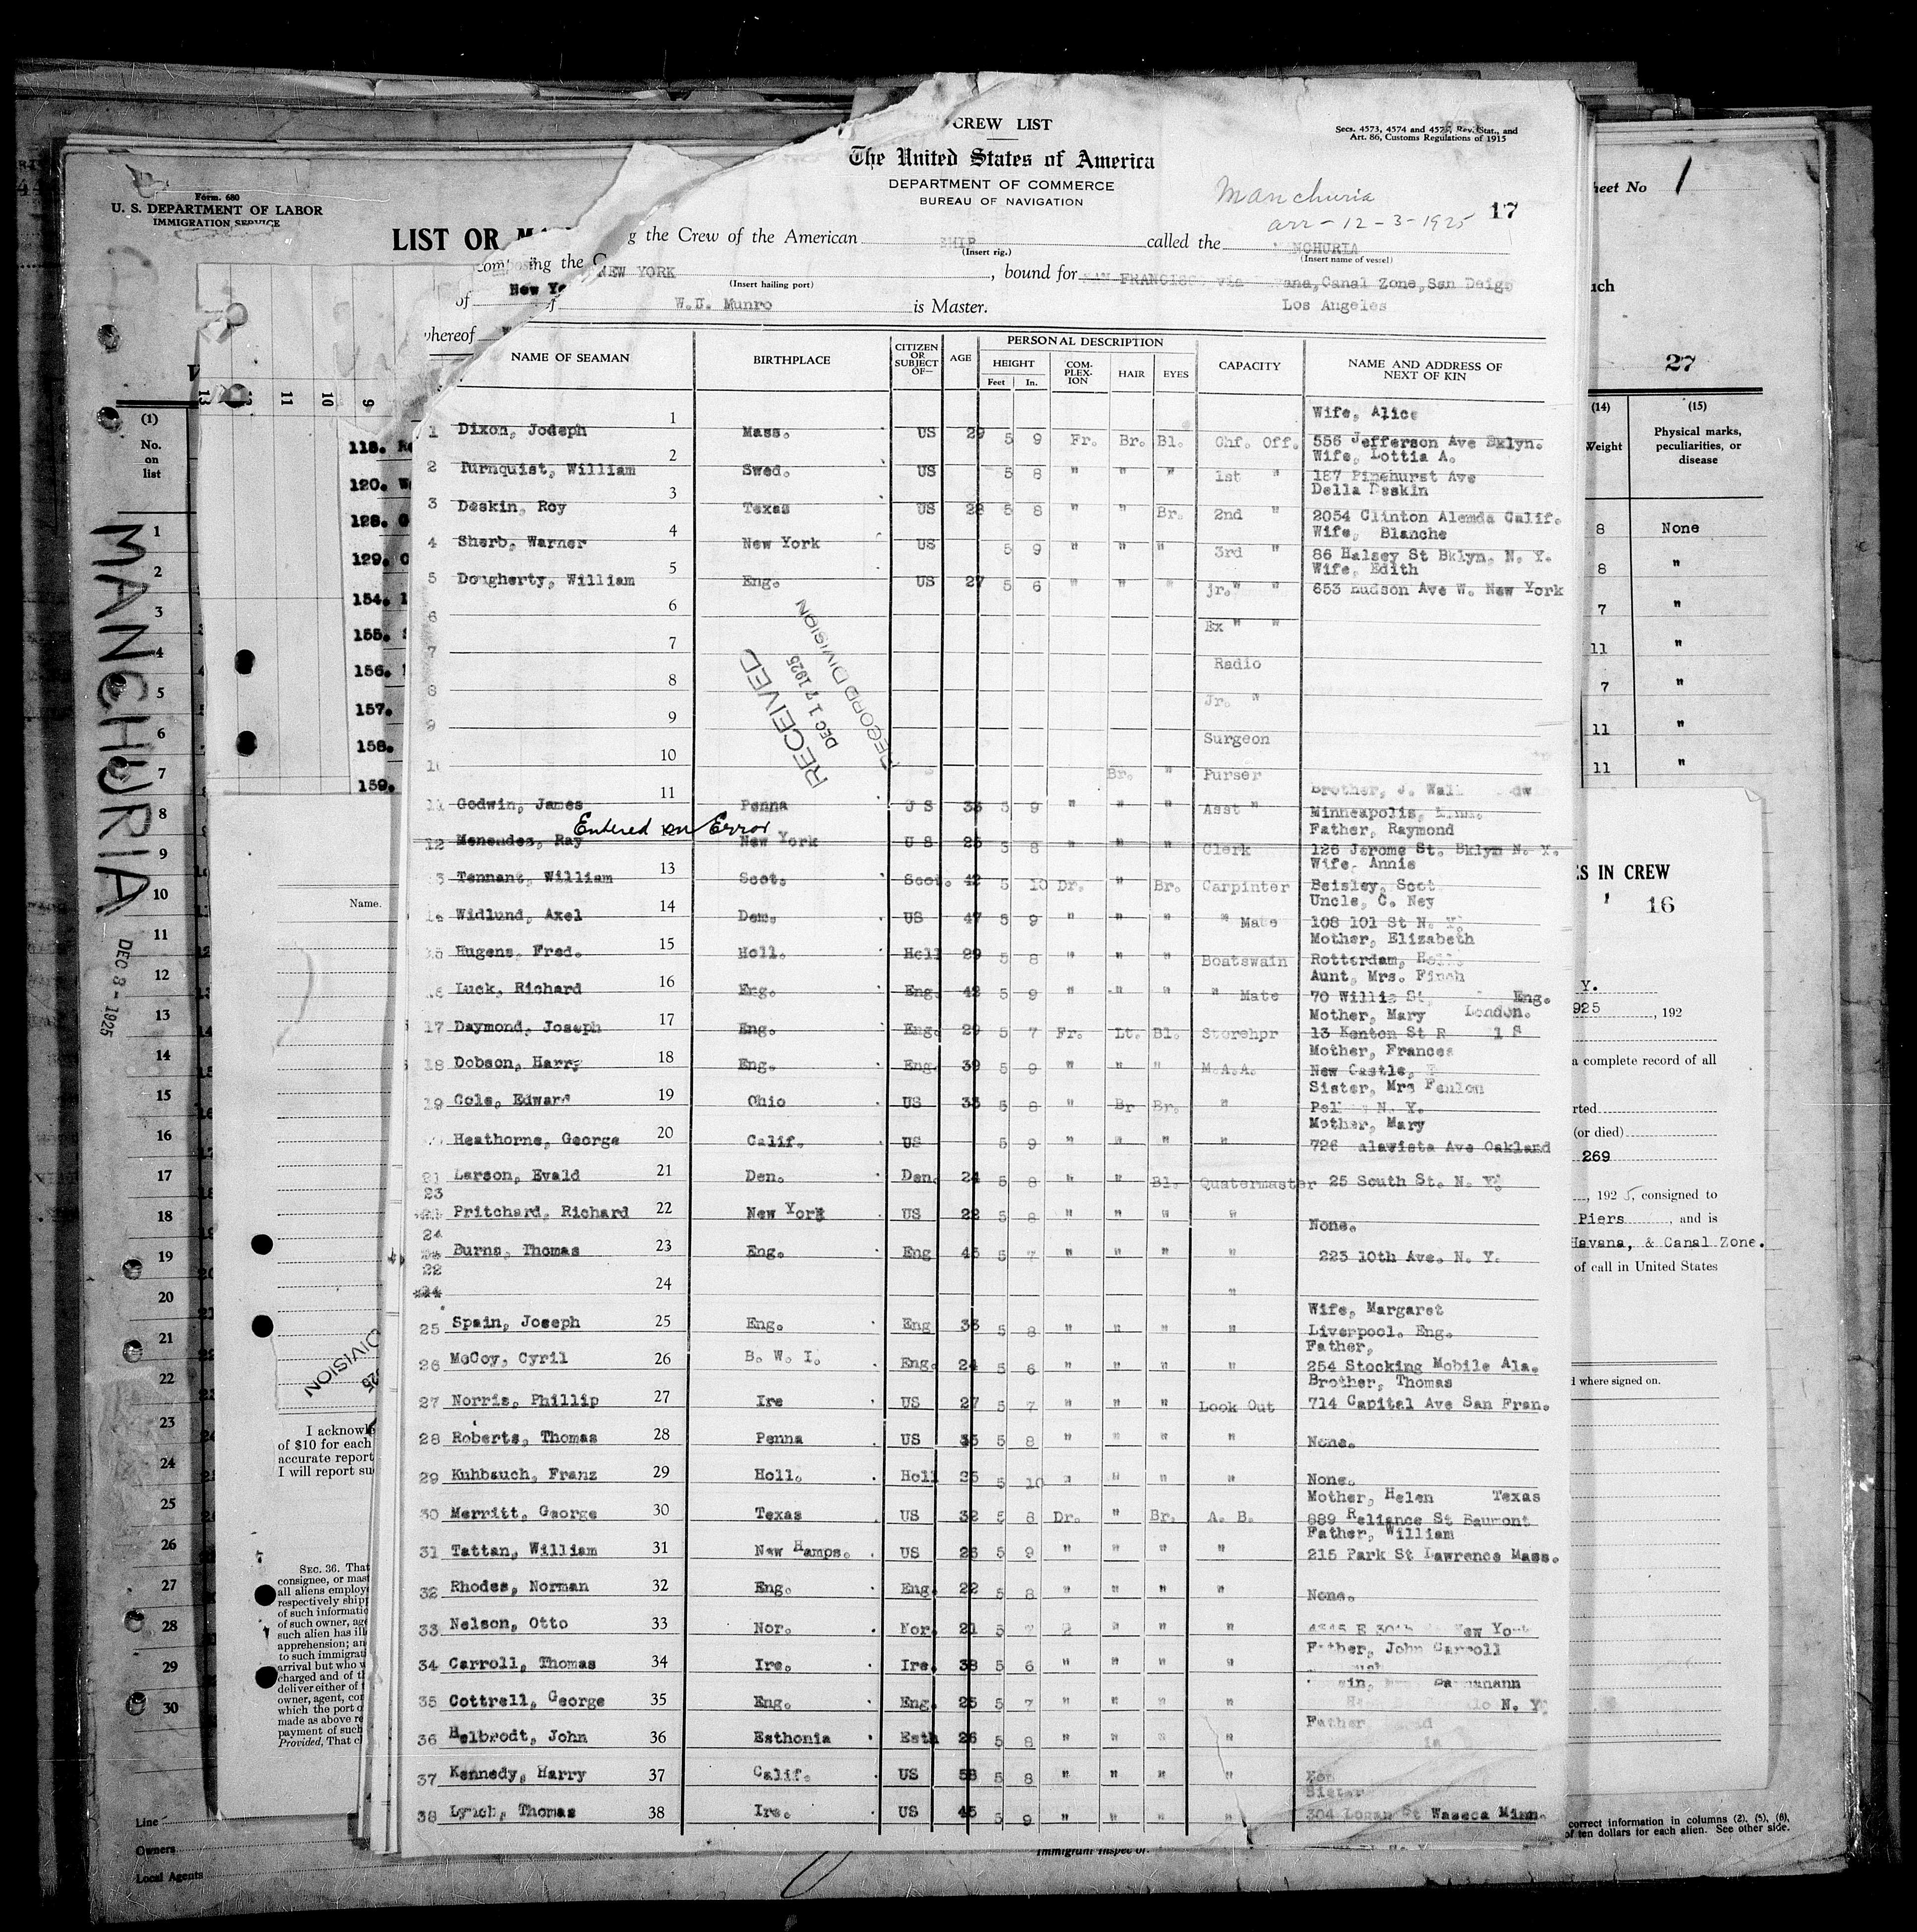 CREW LIST
Secs. 4573, 4574 and 4575, Rev. Stat., and
Art. 86, Customs Regulations of 1915
The United States of America
DEPARTMENT OF COMMERCE
BUREAU OF NAVIGATION
Manchuria
arr - 12 - 3 - 1925
17
g the Crew of the American SHIP called the MANCHURIA
(Insert rig.) (Insert name of vessel)
composing the C
NEW YORK , bound for SAN FRANCISCO via Havana, Canal Zone, San Deigo
(Insert hailing port)
of W.D. Munro is Master. Los Angeles
whereof
NAME OF SEAMAN BIRTHPLACE CITIZEN OR SUBJECT OF— AGE PERSONAL DESCRIPTION CAPACITY NAME AND ADDRESS OF NEXT OF KIN
HEIGHT COM-PLEX-ION HAIR EYES
Feet In.
Wife, Alice
1 Dixon, Jodeph 1 Mass. US 29 5 9 Fr. Br. Bl. Chf. Off. 556 Jefferson Ave Bklyn.
Wife, Lottia A.
2 Turnquist, William 2 Swed. US 5 8 " " " 1st " 187 Pinehurst Ave
Della Deskin
3 Deskin, Roy 3 Texas US 28 5 8 " " Br. 2nd " 2054 Clinton Alemda Calif.
Wife, Blanche
4 Sherb, Warner 4 New York US 5 9 " " " 3rd " 86 Halsey St Bklyn. N. Y.
Wife, Edith
5 Dougherty, William 5 Eng. US 27 5 6 " " " jr." " 653 Hudson Ave W. New York
6 6 Ex " "
7 7 Radio
8 8 Jr. "
9 9 Surgeon
10 10 Br. " Purser
RECEIVED
DEC 17 1925
RECORD DIVISION
Brother, J.
11 Godwin, James 11 Penna U S 5 9 " " " Asst " Minneapolis, Minn.
Entered in Error
Father, Raymond
12 Menendez, Ray New York U S 25 5 8 " " Clerk 126 Jerome St. Bklyn N. Y.
Wife. Annie
13 Tennant, William 13 Scot. Scot. 42 5 10 Dr. " Br. Carpinter Beisley, Scot
Uncle, C. Ney
14 Widlund, Axel 14 Dem. US 47 5 9 " " " " Mate 108 101 St N. Y.
Mother, Elizabeth
15 Hugens, Fred. 15 Holl. Holl 29 5 8 " " " Boatswain Rotterdam, Holl.
Aunt, Mrs. Finch
16 Luck, Richard 16 Eng. Eng. 42 5 9 " " " " Mate 70 Willis St, Eng.
Mother, Mary London.
17 Daymond, Joseph 17 Eng. Eng. 29 5 7 Fr. Lt. Bl. Storehpr 13 Kenton St
Mother, Frances
18 Dobson, Harry 18 Eng. Eng. 39 5 9 " " " M.A.A. New Castle,
Sister, Mrs Fenlon
19 Cole, Edward 19 Ohio US 33 5 8 " Br Br. " N. Y.
Mother, Mary
Heathorne, George 20 Calif. US 5 9 " " " " 726 alavista Ave Oakland
21 Larson, Evald 21 Den. Den. 24 5 8 " " Bl. Quatermaster 25 South St. N. Y.
23
Pritchard, Richard 22 New York US 22 5 8 " " " " None.
24
Burns, Thomas 23 Eng. Eng 45 5 7 " " " " 223 10th Ave. N. Y.
22
24 "
Wife, Margaret
25 Spain, Joseph 25 Eng. Eng 33 5 8 " " " " Liverpool. Eng.
Father,
26 McCoy, Cyril 26 B. W. I. Eng. 24 5 6 " " " " 254 Stocking Mobile Ala.
Brother, Thomas
27 Norris, Phillip 27 Ire US 27 5 7 " " " Look Out 714 Capital Ave San Fran.
28 Roberts, Thomas 28 Penna US 35 5 8 " " " " None.
29 Kuhbauch, Franz 29 Holl. Holl 35 5 10 " " " " None.
Mother, Helen Texas
30 Merritt, George 30 Texas US 32 5 8 Dr. " Br. A. B. 889 Reliance St Baumont
Father, William
31 Tattan, William 31 New Hamps. US 26 5 9 " " " " 215 Park St Lawrence Mass.
32 Rhodes, Norman 32 Eng. Eng. 22 5 8 " " " " None.
33 Nelson, Otto 33 Nor. Nor. 21 5 7 " " " E 30th New York
Father, John Carroll
34 Carroll, Thomas 34 Ire. Ire. 38 5 6 " " " "
35 Cottrell, George 35 Eng. Eng. 25 5 7 " " " " N. Y.
Father
36 Helbrodt, John 36 Esthonia Esth 26 5 8 " " " "
37 Kennedy, Harry 37 Calif. US 58 5 8 " " " "
Sister
38 Lynch, Thomas 38 Ire. US 45 5 9 " " " " 304 Logan St Waseca Minn.
Form 680
U. S. DEPARTMENT OF LABOR
IMMIGRATION SERVICE
LIST OR MA
New Yo
13 11 10 9
(1)
No.
on
list
118.
120.
128.
129.
154.
155.
156.
157.
158.
159.
MANCHURIA
DEC 8 - 1925
1
2
3
4
5
6
7
8
9
10
11
12
13
14
15
16
17
18
19
20
21
22
23
24
25
26
27
28
29
30
Name.
DIVISION
I acknowl
of $10 for each
accurate report
I will report su
SEC. 36. That
consignee, or mast
all aliens employe
respectively shipp
of such informatio
of such owner, age
such alien has ill
apprehension; an
to such immigrati
arrival but who w
charged and of t
deliver either of t
owner, agent, con
which the port o
made as above re
payment of such
Provided, That cl
Line
Owners
Local Agents
Immigrant Inspector.
heet No 1
uch
27
(14) (15)
Weight Physical marks,
peculiarities, or
disease
8 None
8 "
7 "
11 "
7 "
11 "
11 "
ES IN CREW
16
Y.
925 , 192
a complete record of all
rted
(or died)
269
, 192 5, consigned to
Piers , and is
Havana, & Canal Zone.
of call in United States
d where signed on.
correct information in columns (2), (5), (6),
of ten dollars for each alien. See other side.